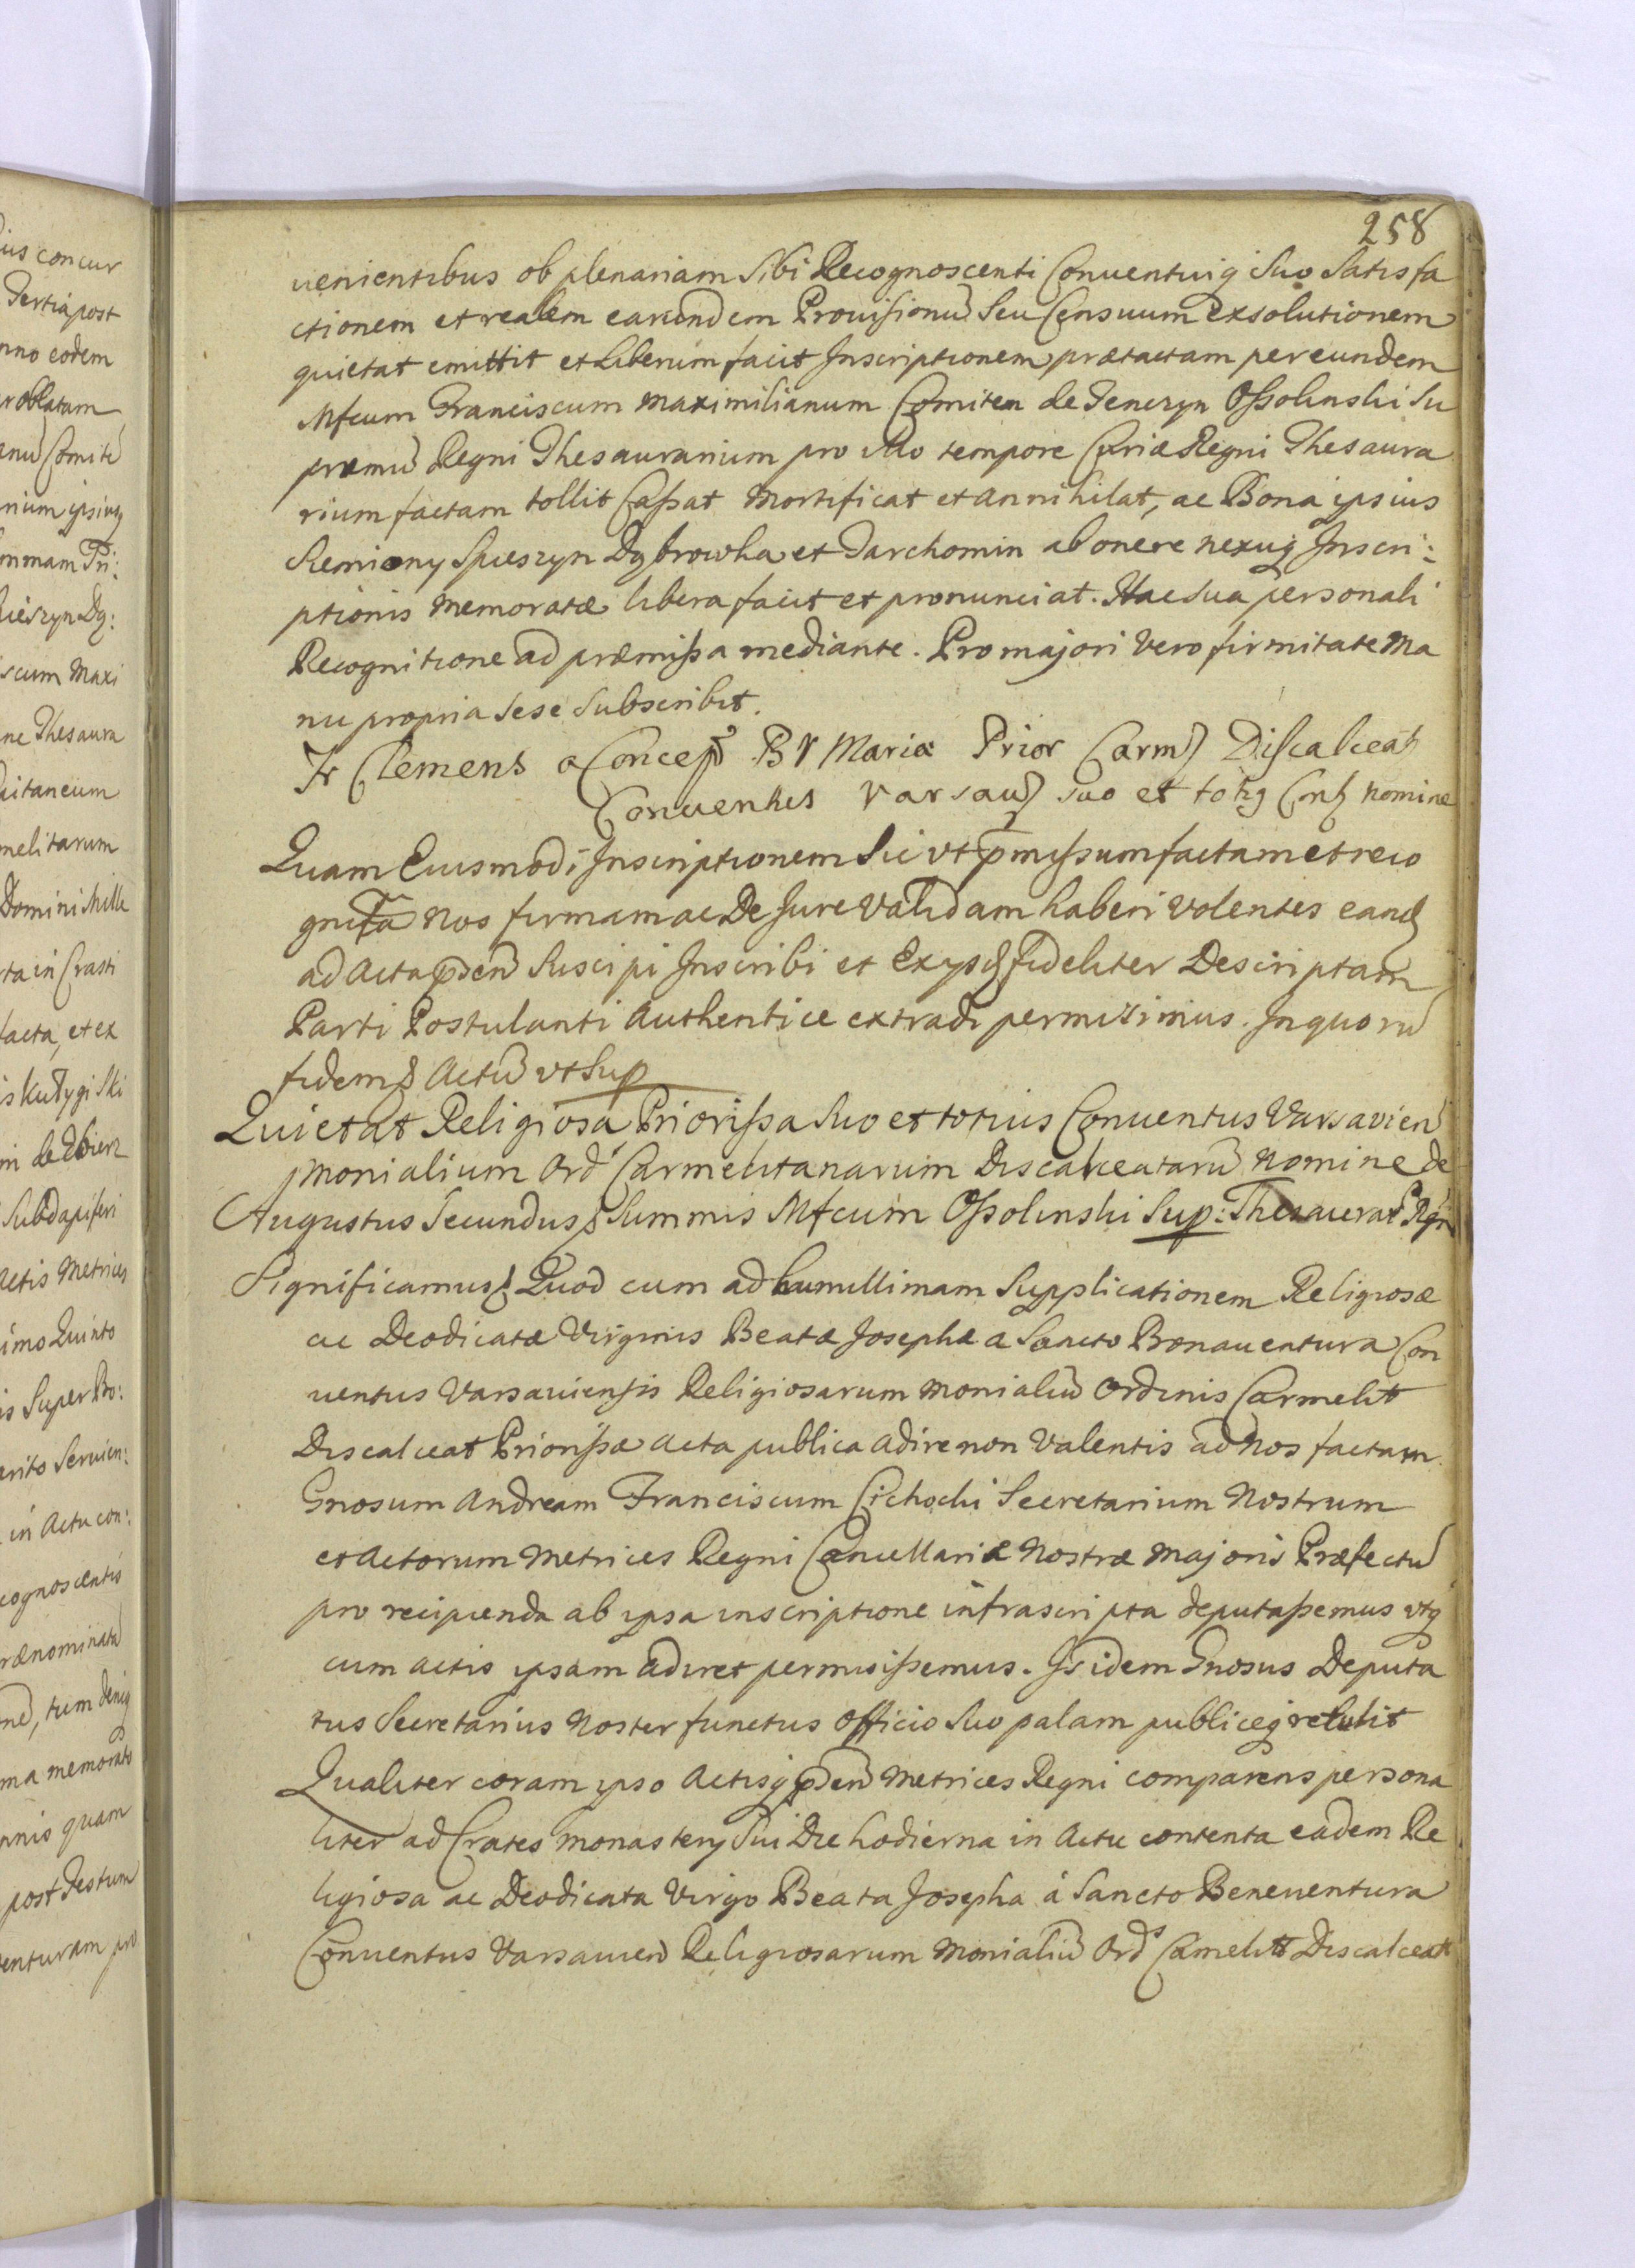 258
uenientibus ob plenariam Sibi Recognoscenti Conuentuiq Suo Satisfa
ctionem et realem earundem Prouisionū Seu Censuum exsolutionem
quietat emittit et Liberum facit Inscriptionem prætactam per eundem
Mfcum Franciscum Maximilianum Comitem de Tenczyn Ossolinski Su
præmū Regni Thesaurarium pro illo tempore Curiæ Regni Thesaura
rium factam tollit Cassat Mortificat et annihilat, ac Bona ipsius
Remiony Spieszyn Dąbrowka et Tarchomin ab onere nexuq Inscri:
ptionis Memoratæ libera facit et pronunciat. Hac Sua personali
Recognitione ad præmissa mediante. Pro majori Vero firmitate Ma
nu propria Sese Subscribit.
Fr Clemens a Concep B V Mariæ Prior Carm Discalceat
Conuentus Varsau suo et totiq Con nomine
Quam Eiusmodi Inscriptionem Sic vt pmissum factam et reco
gnita Nos firmam ac De Jure Validam haberi Volentes eand
ad Acta psen Suscipi Inscribi et Exysd fideliter Descriptam
Parti Postulanti Authentice extradi permisimus. In quorū
fidem Actū vt Sup
Quietat Religiosa Priorissa Suo et totius Conuentus Varsavien
Monialium Ord Carmelitanarum Discalceatarū Nomine de
Augustus Secundus Summis Mfcum Ossolinski Sup: Thesaurar Rgn
Significamus Quod cum ad humillimam Supplicationem Religiosæ
ac Deodicatæ Virginis Beatæ Josephæ a Sancto Bonauentura Con
uentus Varsauiensis Religiosarum Monialiū Ordinis Carmelit
Discalceat Priorissæ Acta publica adire non Valentis ad Nos factam
Gnosum Andream Franciscum Cichocki Secretarium Nostrum
et Actorum Metrices Regni Cancellariæ Nostræ Majoris Præfectū
pro recipienda ab ipsa inscriptione infrascripta deputassemus vtq
cum actis ipsam adiret permisissemus. Is idem Gnosus Deputa
tus Secretarius Noster functus Officio Suo palam publiceq retulit
Qualiter coram ipso Actisq psen Metrices Regni comparens persona
liter ad Crates Monastery Sui Die hodierna in Actu contenta eadem Re
ligiosa ac Deodicata Virgo Beata Josepha á Sancto Beneuentura
Conuentus Varsauien Religiosarum Monialiū Ord Camelitt Discalceatt